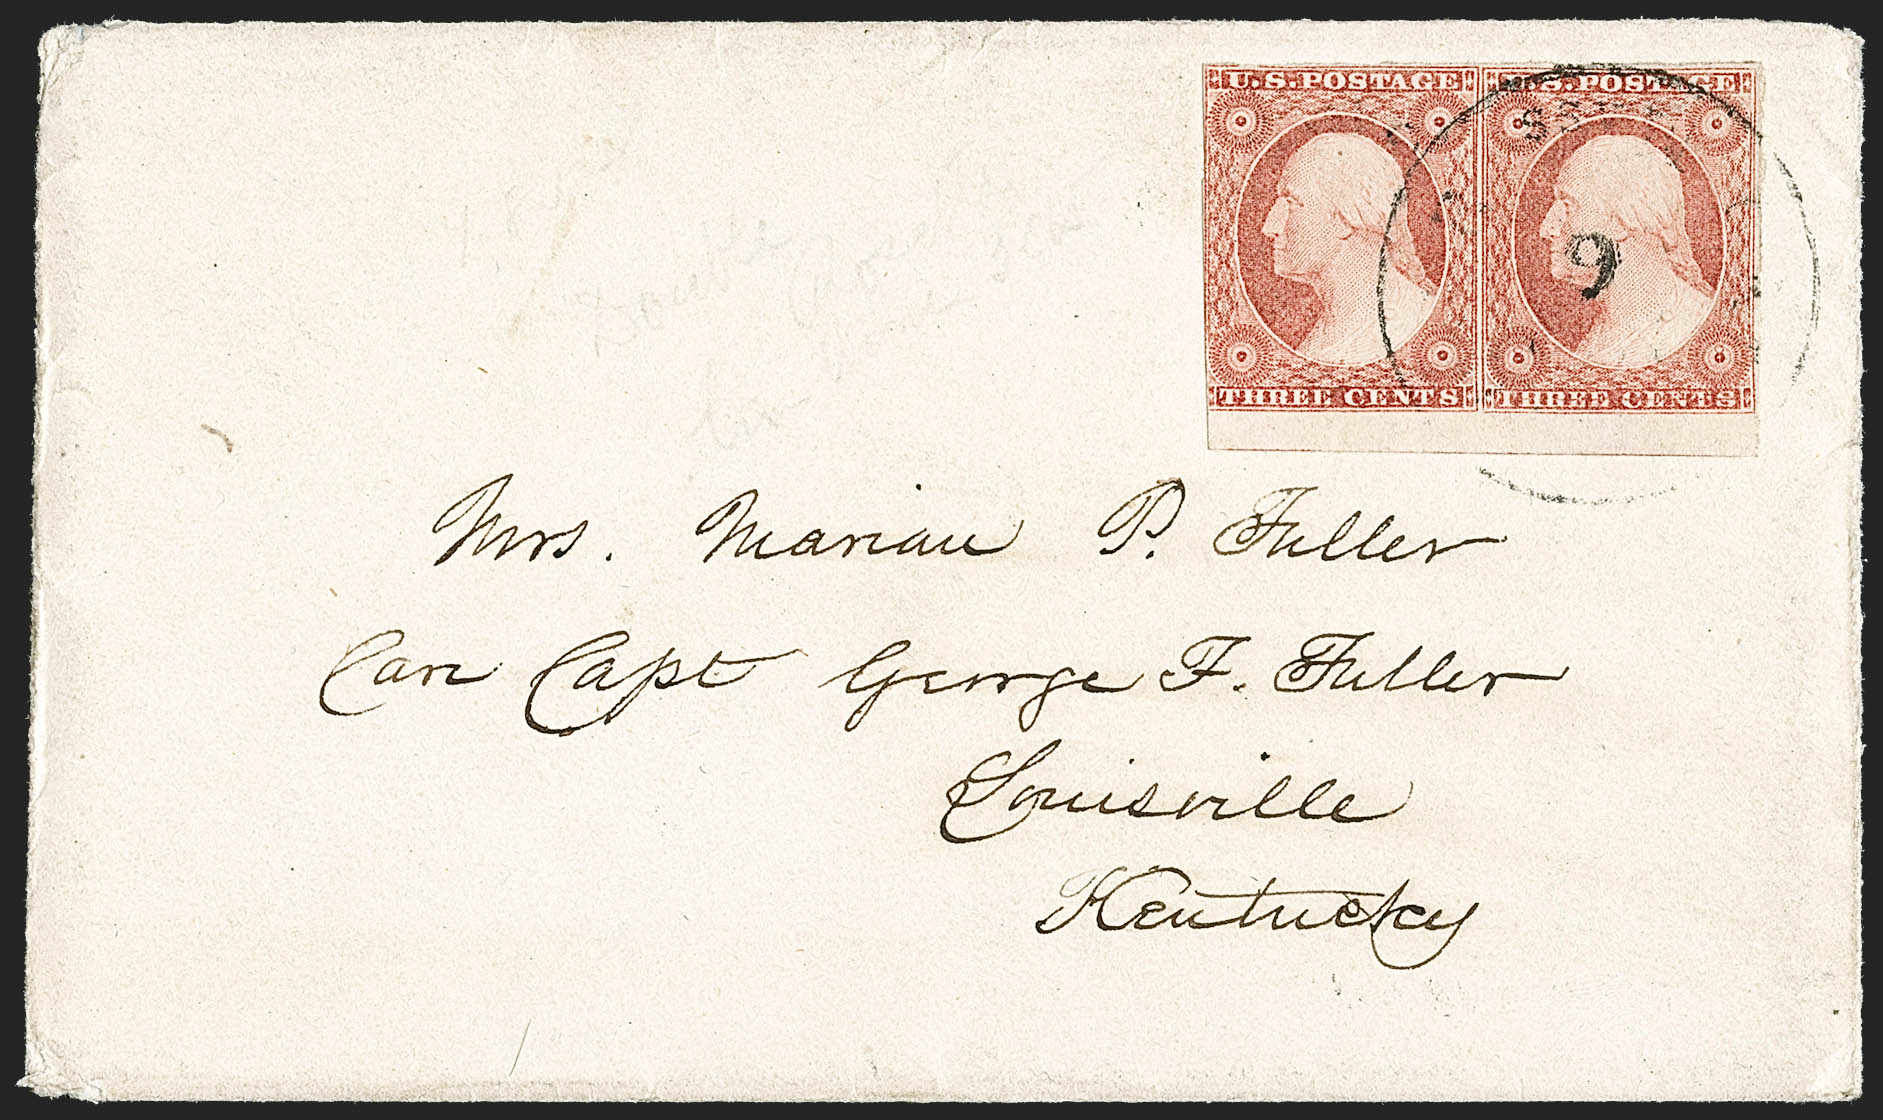 U.S.POSTAGE U.S.POSTAGE
9
THREE CENTS THREE CENTS
Double
Mrs. Marian P. Fuller
Care Capt George F. Fuller
Louisville
Kentucky